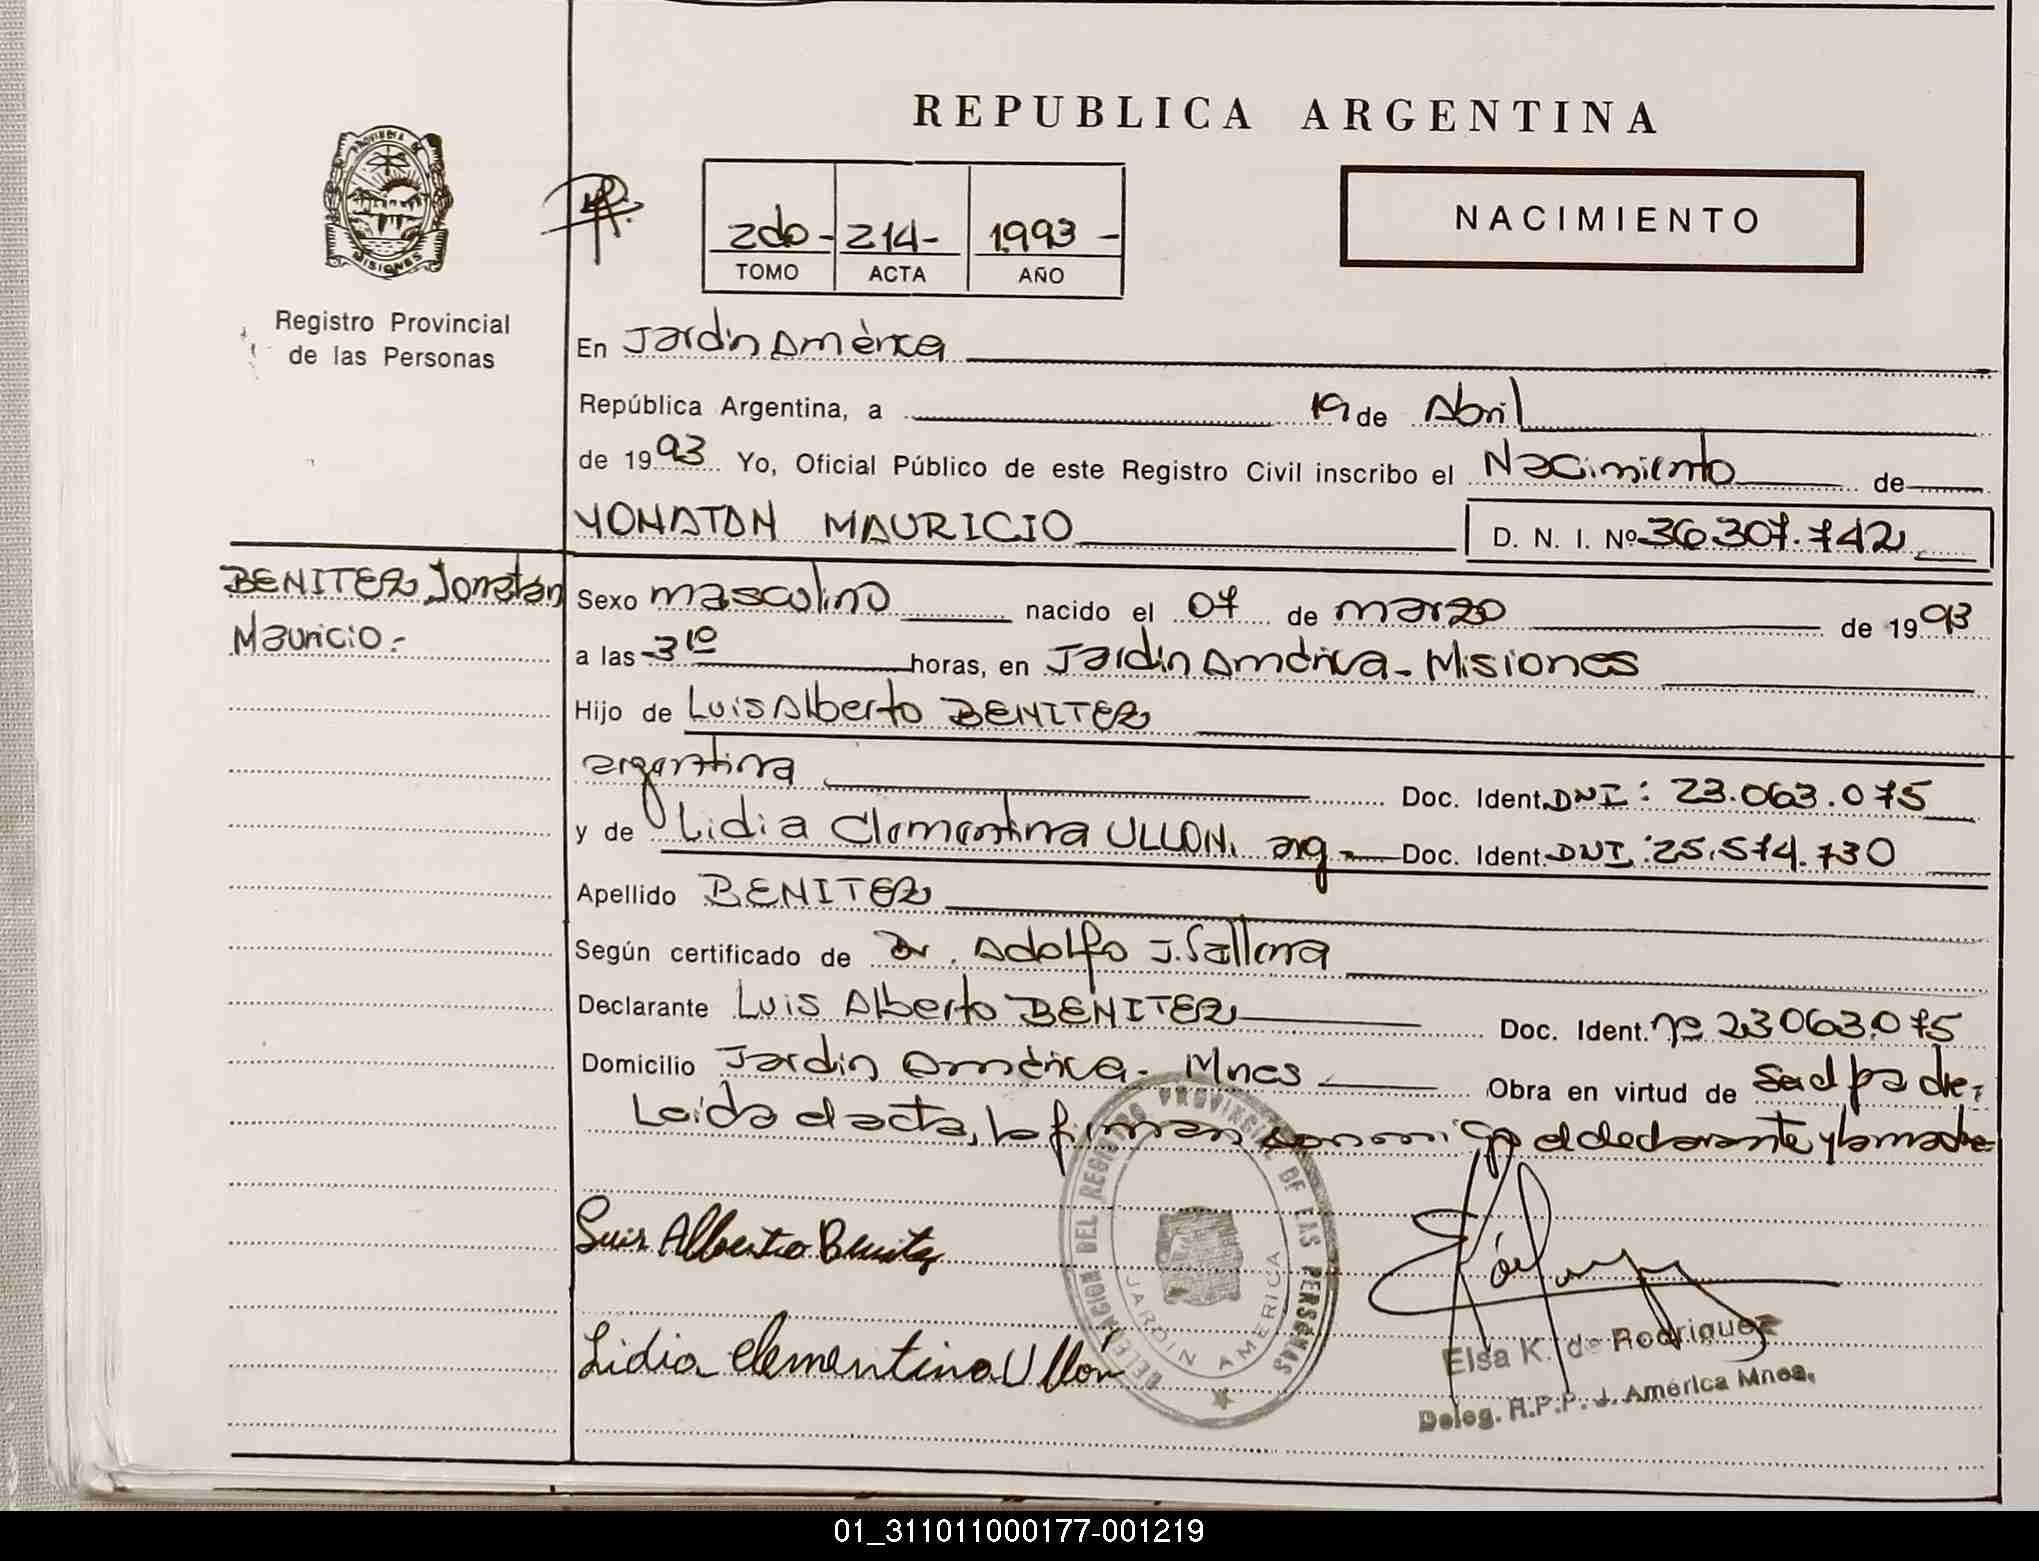 REPUBLICA ARGENTINA
PROVINCIA DE
MISIONES
Registro Provincial
de las Personas
2do- 214- 1993-
TOMO ACTA AÑO
NACIMIENTO
En Jardin Amèrica
República Argentina, a 19 de Abril
de 1993 Yo, Oficial Público de este Registro Civil inscribo el Nacimiento de
YONATAN MAURICIO D. N. I. Nº 36.307.742
BENITEZ Jonatan
Mauricio.-
Sexo masculino nacido el 07 de marzo de 1993
a las 3 10 horas, en Jardin América - Misiones
Hijo de Luis Alberto BENITEZ
argentina Doc. Ident. DNI: 23.063.075
y de Lidia Clementina ULLON. arg Doc. Ident. DNI: 25.574.730
Apellido BENITEZ
Según certificado de Dr. Adolfo J.
Declarante Luis Alberto BENITEZ Doc. Ident. Nº 23.063.075
Domicilio Jardin América - Mnes Obra en virtud de Ser el padre,
Leida el acta, la firman conmigo el declarante y la madre
Luis Alberto Benitez
Lidia Clementina Ullón
DELEGACION DEL REGISTRO PROVINCIAL DE LAS PERSONAS
JARDIN AMERICA
Elsa K. de Rodriguez
Deleg. R.P.P. J. América Mnes.
01_311011000177-001219